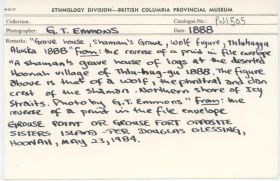 ETHNOLOGY DIVISION—BRITISH COLUMBIA PROVINCIAL MUSEUM
Collection: Catalogue No.: PN1505
Photographer: G.T. EMMONS Date: 1888
Remarks: "Grave house, Shaman's Grave, wolf figure,
Alaska 1888" from: the reverse of a print in file envelope
"A shaman's grave house of logs at the deserted
Hoonah village of 1888. The figure
above is that of a wolf, the phratral and clan
crest of the shaman. Northern shore of Icy
Straits. Photo by G.T. Emmons" from: the reverse
of a print in the file envelope
GROUSE POINT OR GROUSE FORT OPPOSITE
SISTERS ISLAND - PER DOUGLAS OLESSING,
HOONAH, MAY 23, 1984.